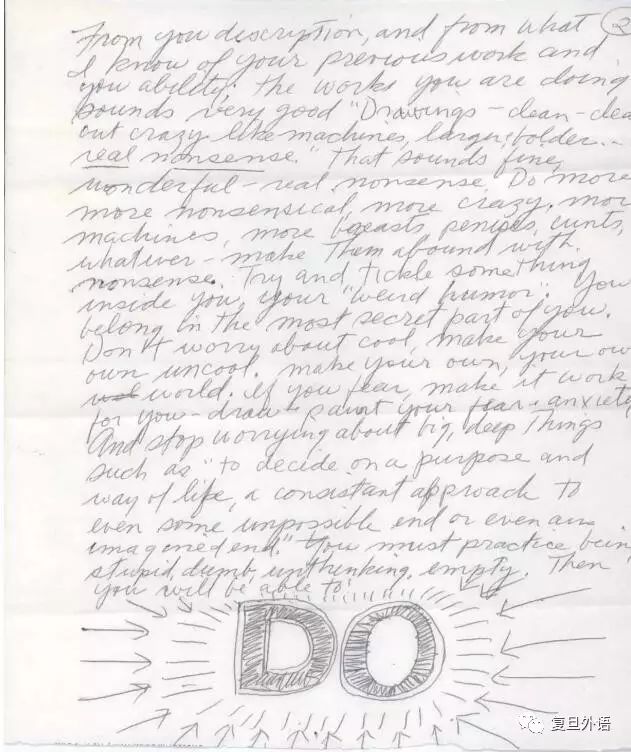 From you description, and from what 2
I know of your previous work and
you ability; the works you are doing
sounds very good "Drawings-clean-clea
out crazy like machines, larger, bolder...
real nonsense." That sounds fine,
wonderful - real nonsense. Do more
more nonsensical, more crazy, mor
machines, more breasts, penises, cunts,
whatever - make them abound with
nonsense. Try and tickle something
inside you, your "weird humor". You
belong in the most secret part of you.
Don't worry about cool, make your
own uncool. make your own, your ow
world. If you fear, make it work
for you - draw & paint your fear & anxiety
And stop worrying about big, deep things
such as "to decide on a purpose and
way of life, a consistant approach to
even some impossible end or even an
imagined end." You must practice bein
stupid, dumb, unthinking, empty. Then
you will be able to
DO
复旦外语